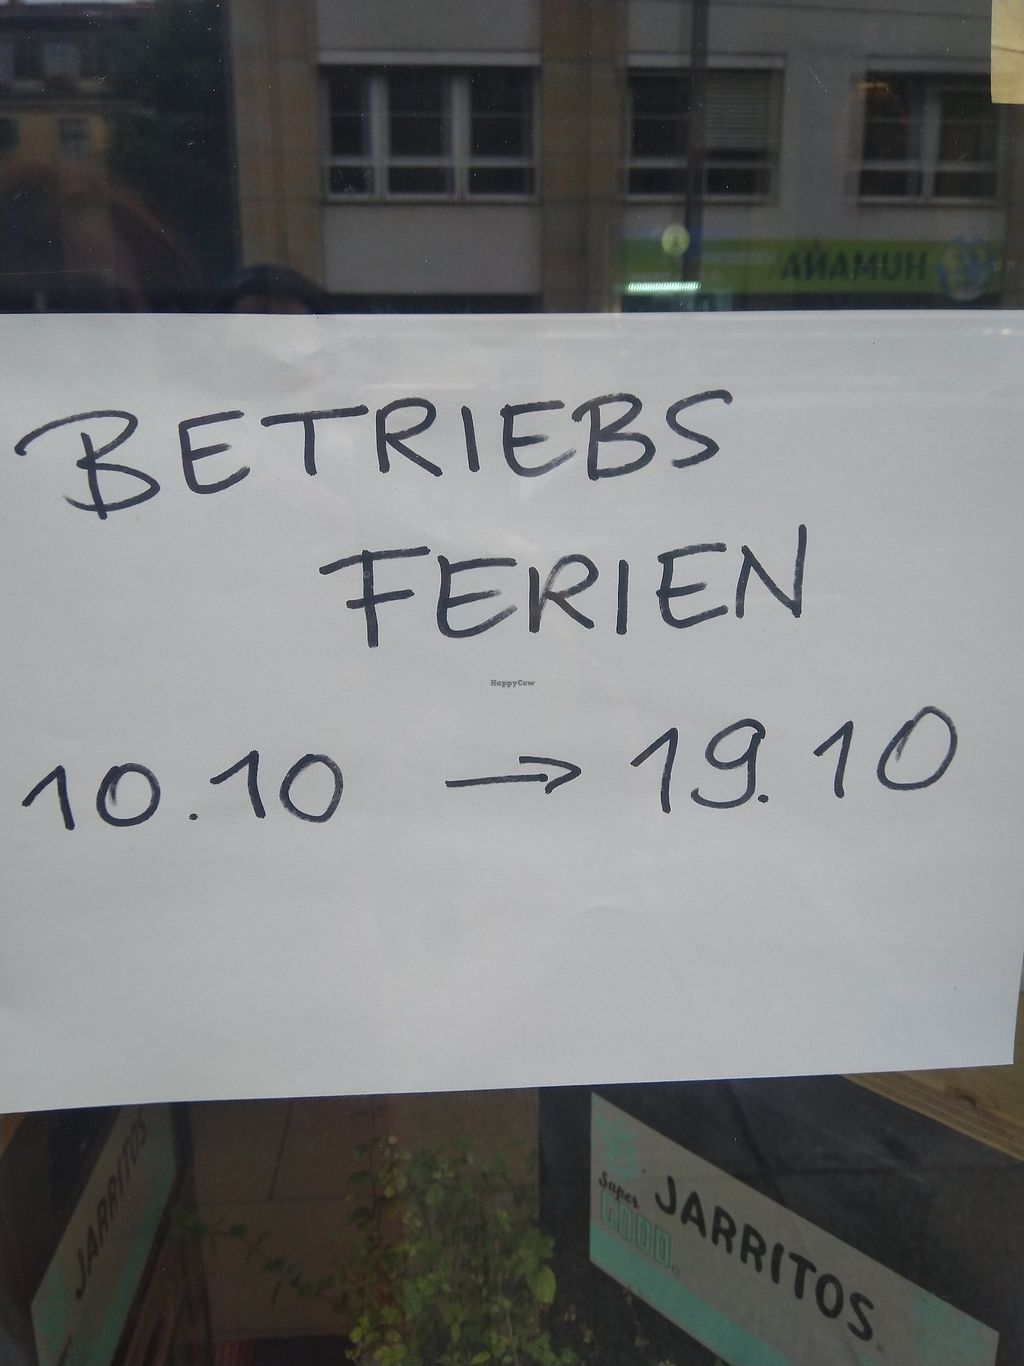 HUMANA
BETRIEBS
FERIEN
HappyCow
10.10 → 19.10
JARRITOS
Super
GOOD.
JARRITOS.